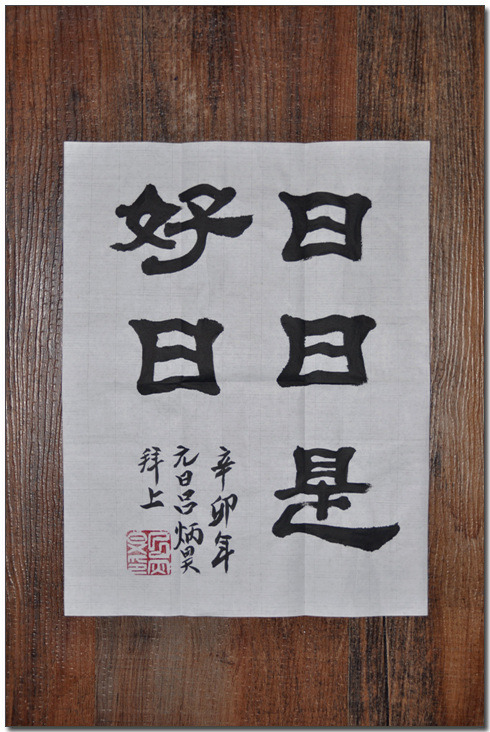 日日是
好日
辛卯年
元日吕炳昊
拜上